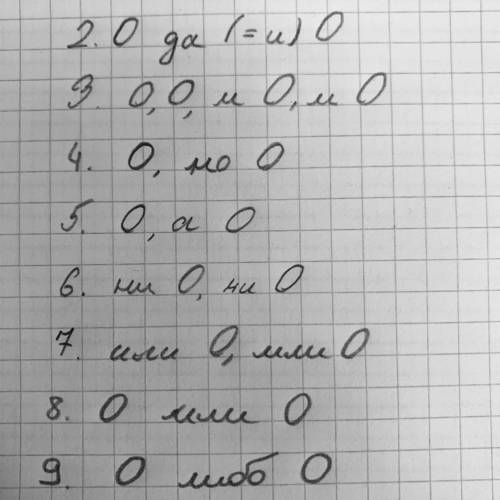 2. О да (=и) О
3. О, О, и О, и О
4. О, но О
5. О, а О
6. ни О, ни О
7. или О, или О
8. О или О
9. О либо О